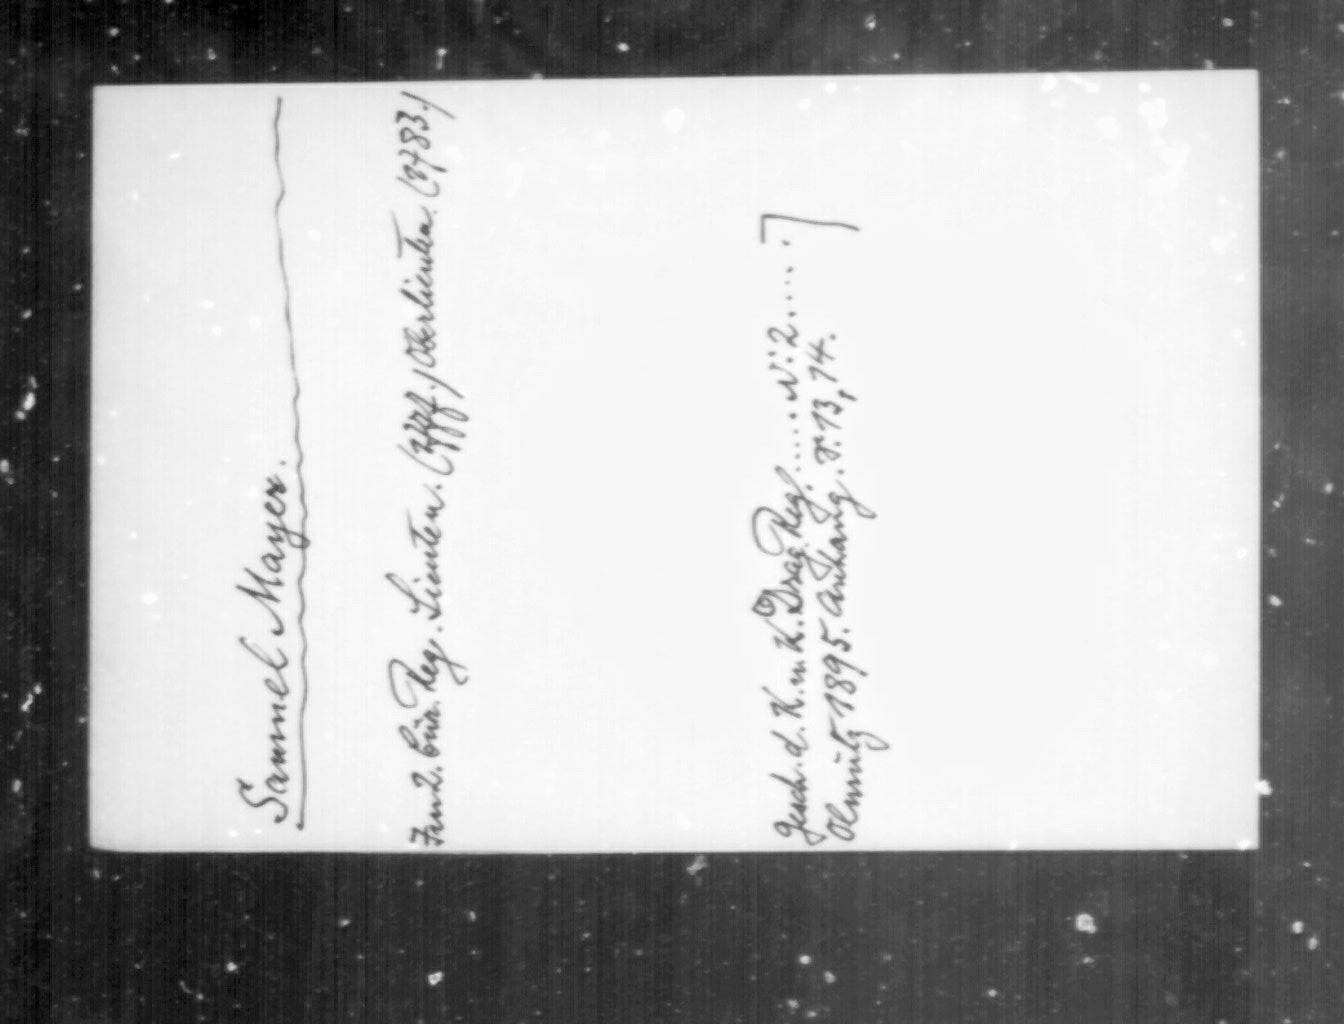 Samuel Mayer.
Im 2. Cür. Reg. Lieuten. Oberlieuten. (3783.)
Gesch. d. K. u. K. Drag. Reg. ..... N: 2 ..... .]
Olmütz 1895. Anhang. S. 13, 74.